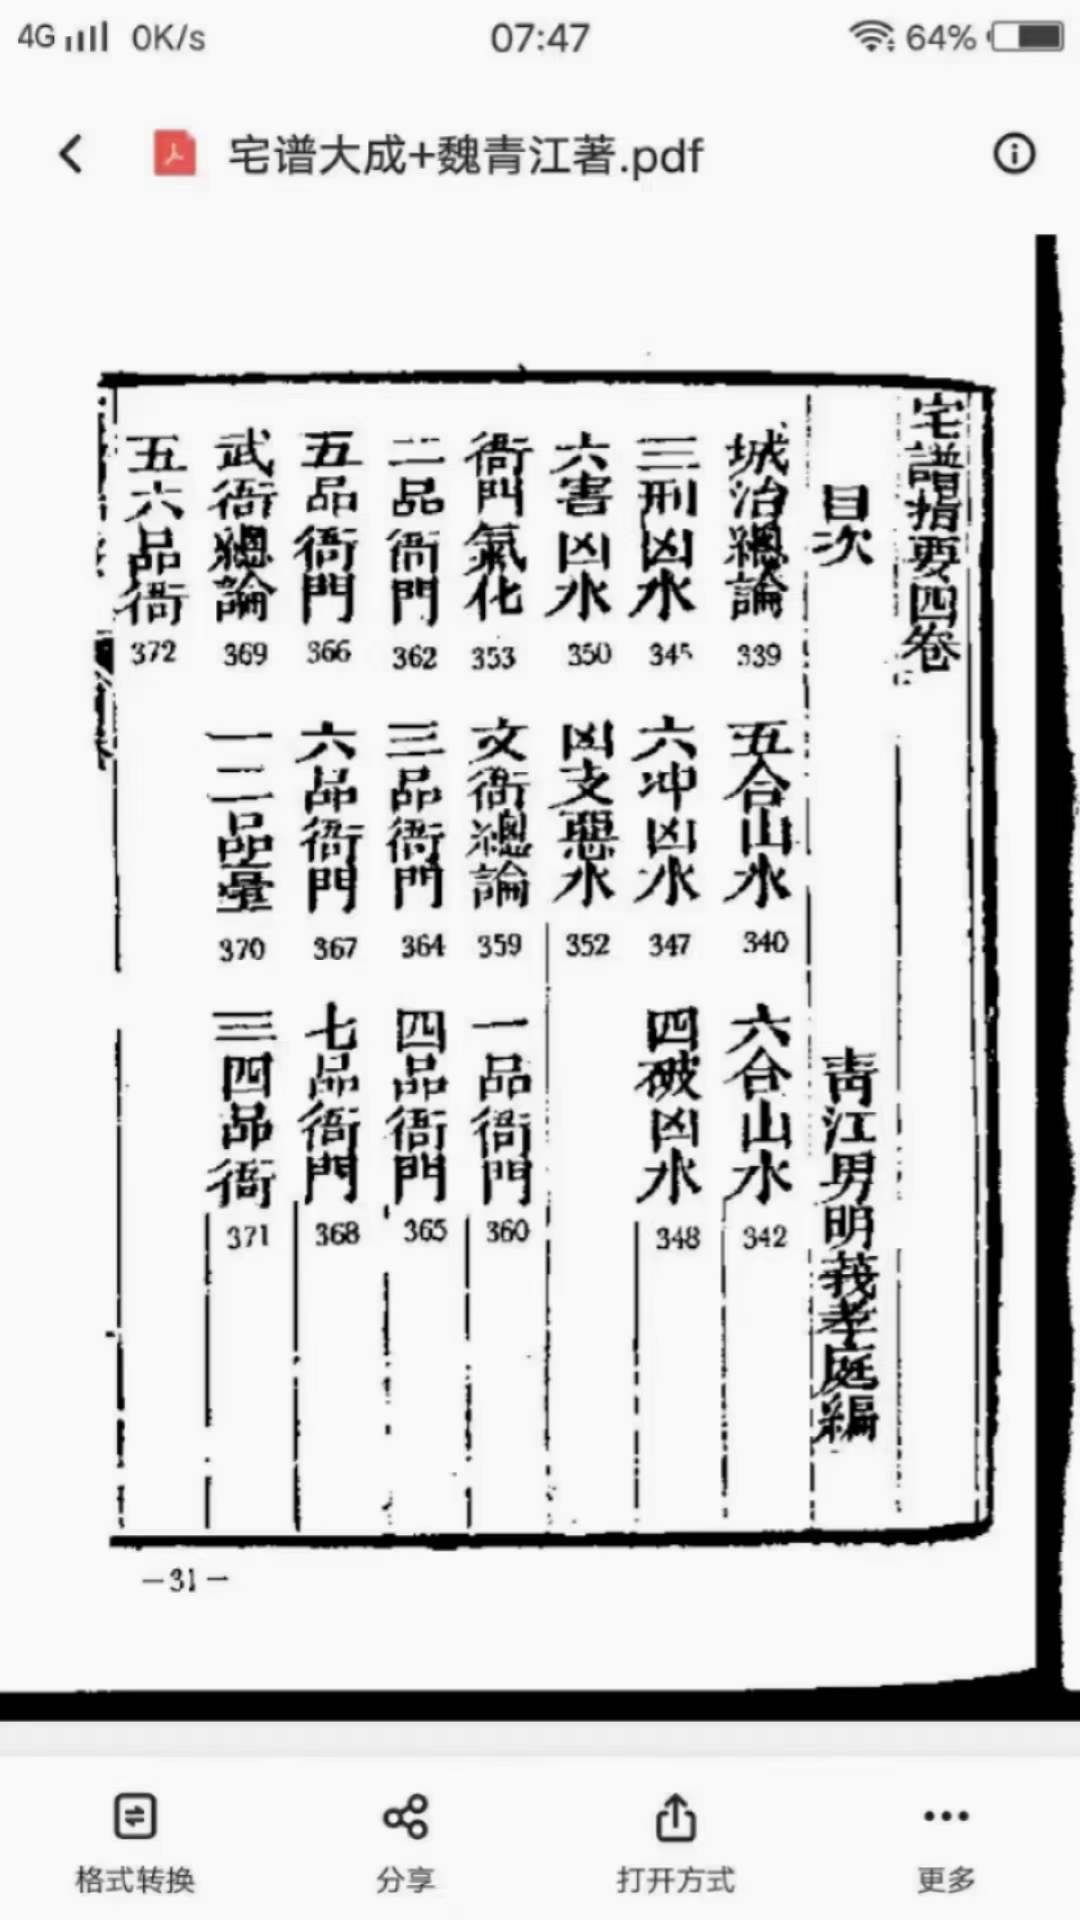 4G 0K/s 07:47 64%
宅谱大成+魏青江著.pdf
宅譜指要四卷
目次 青江男明莪孝庭編
城治總論 339 五合山水 340 六合山水 342
三刑凶水 345 六冲凶水 347 四破凶水 348
六害凶水 350 凶支惡水 352
衙門氣化 353 文衙總論 359 一品衙門 360
二品衙門 362 三品衙門 364 四品衙門 365
五品衙門 366 六品衙門 367 七品衙門 368
武衙總論 369 一二品臺 370 三四品衙 371
五六品衙 372
—31—
格式转换 分享 打开方式 更多